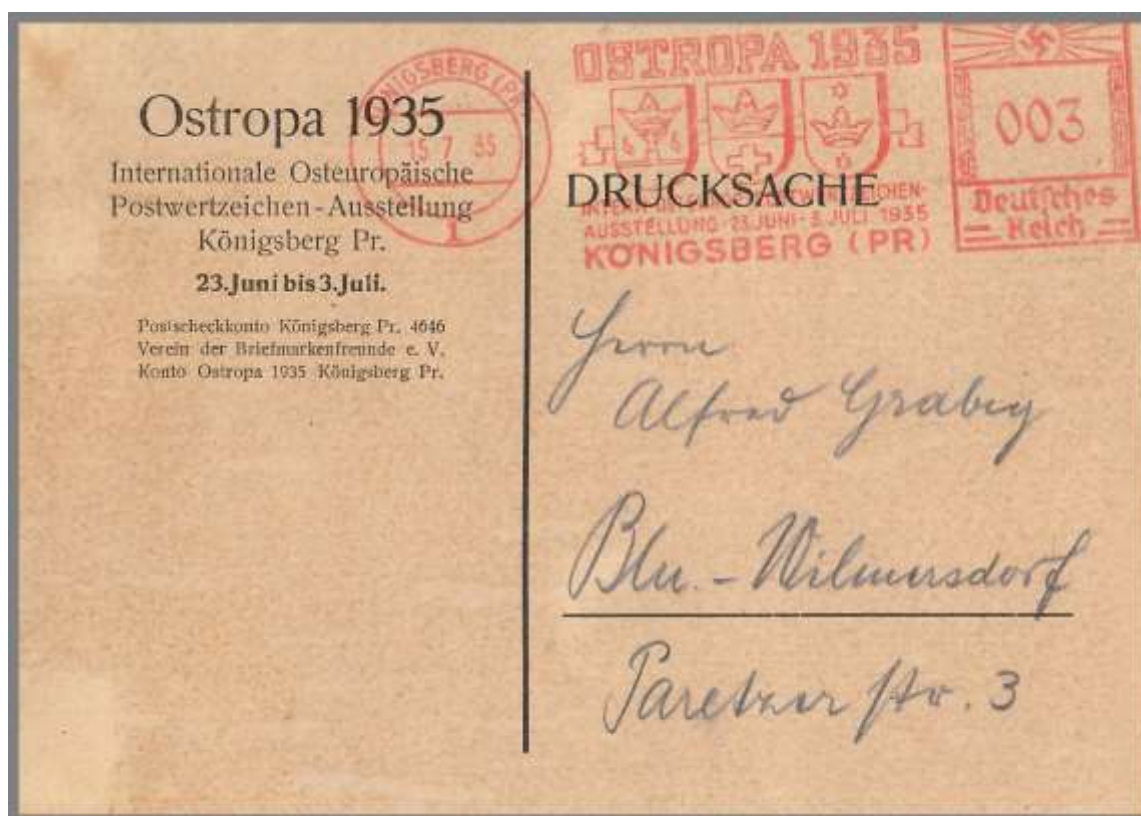 Ostropa 1935
Internationale Osteuropäische
Postwertzeichen-Ausstellung
Königsberg Pr.
23.Juni bis 3.Juli.
Postscheckkonto Königsberg Pr. 4646
Verein der Briefmarkenfreunde e. V.
Konto Ostropa 1935 Königsberg Pr.
KÖNIGSBERG (PR)
15 7 35
1
OSTROPA 1935
AUSSTELLUNG·23.JUNI-3.JULI 1935
KÖNIGSBERG (PR)
003
Deutsches
Reich
DRUCKSACHE
Herrn
Alfred Grabig
Bln.-Wilmersdorf
Paretzer Str. 3